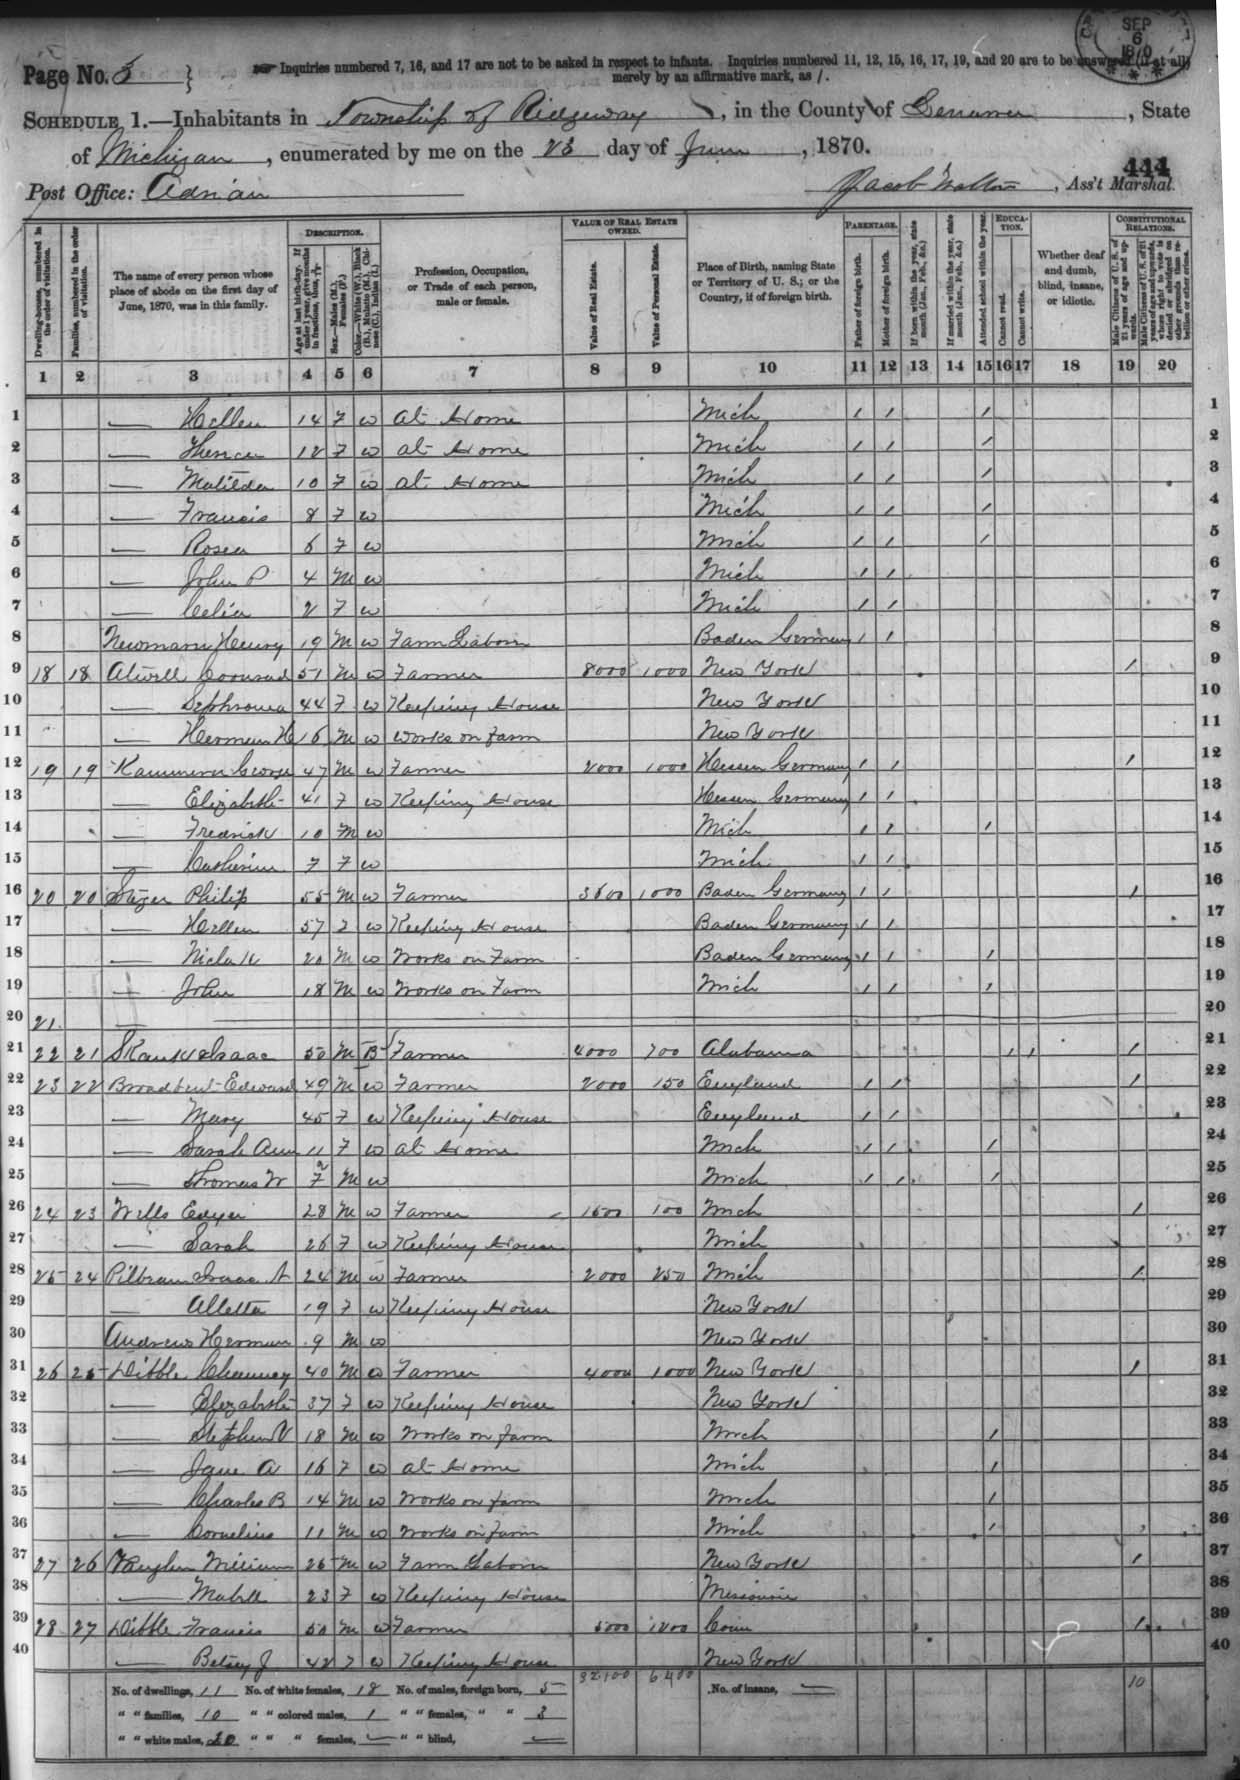 SEP
6
1870
Page No. 3 }
Inquiries numbered 7, 16, and 17 are not to be asked in respect to infants. Inquiries numbered 11, 12, 15, 16, 17, 19, and 20 are to be answered (if at all)
merely by an affirmative mark, as /.
SCHEDULE 1.—Inhabitants in Township of Ridgeway, in the County of Lenawee, State
of Michigan, enumerated by me on the 23 day of June, 1870.
444
Post Office: Adrian Jacob Walton, Ass't Marshal.
Dwelling-houses, numbered in the order of visitation.
Families, numbered in the order of visitation.
The name of every person whose place of abode on the first day of June, 1870, was in this family.
DESCRIPTION.
Age at last birth-day. If under 1 year, give months in fractions, thus, 3/12
Sex.—Males (M.), Females (F.)
Color.—White (W.), Black (B.), Mulatto (M.), Chinese (C.), Indian (I.)
Profession, Occupation, or Trade of each person, male or female.
VALUE OF REAL ESTATE OWNED.
Value of Real Estate.
Value of Personal Estate.
Place of Birth, naming State or Territory of U. S.; or the Country, if of foreign birth.
PARENTAGE.
Father of foreign birth.
Mother of foreign birth.
If born within the year, state month (Jan., Feb., &c.)
If married within the year, state month (Jan., Feb., &c.)
Attended school within the year.
EDUCATION.
Cannot read.
Cannot write.
Whether deaf and dumb, blind, insane, or idiotic.
CONSTITUTIONAL RELATIONS.
Male Citizens of U. S. of 21 years of age and upwards.
Male Citizens of U. S. of 21 years of age and upwards, whose right to vote is denied or abridged on other grounds than rebellion or other crime.
1 2 3 4 5 6 7 8 9 10 11 12 13 14 15 16 17 18 19 20
1 — Hellen 14 F W At Home Mich / / / 1
2 — 12 F W at Home Mich / / / 2
3 — Matilda 10 F W at Home Mich / / / 3
4 — Francis 8 F W Mich / / / 4
5 — Rosea 6 F W Mich / / / 5
6 — John P 4 M W Mich / / 6
7 — Celia 2 F W Mich / / 7
8 Newmann Henry 19 M W Farm Labor Baden Germany / / 8
9 18 18 Atwell Conrad 51 M W Farmer 8000 1000 New York / 9
10 — Sophronia 44 F W Keeping House New York 10
11 — Herman H 16 M W Works on Farm New York 11
12 19 19 George 47 M W Farmer 2000 1000 Hessen Germany / / / 12
13 — Elizabeth 41 F W Keeping House Hessen Germany / / 13
14 — Fredrick 10 M W Mich / / / 14
15 — Catherine 7 F W Mich / / 15
16 20 20 Philip 55 M W Farmer 3600 1000 Baden Germany / / / 16
17 — Hellen 57 F W Keeping House Baden Germany / / 17
18 — 20 M W Works on Farm Baden Germany / / / 18
19 — John 18 M W Works on Farm Mich / / / 19
20 21 — 20
21 22 21 Isaac 50 M B Farmer 4000 700 Alabama / / / 21
22 23 22 Broadbent Edward 49 M W Farmer 2000 150 England / / / 22
23 — Mary 45 F W Keeping House England / / 23
24 — Sarah Ann 11 F W at Home Mich / / / 24
25 — Thomas W 7 M W Mich / / / 25
26 24 23 Wells 28 M W Farmer 1600 100 Mich / 26
27 — Sarah 26 F W Keeping House Mich 27
28 25 24 Pilbeam Isaac A 24 M W Farmer 2000 250 Mich / 28
29 — Alletta 19 F W Keeping House New York 29
30 Andrews Herman 9 M W New York 30
31 26 25 Dibble Chauncey 40 M W Farmer 4000 1000 New York / 31
32 — Elizabeth 37 F W Keeping House New York 32
33 — Stephen V 18 M W Works on Farm Mich / 33
34 — Jane A 16 F W at Home Mich / 34
35 — Charles B 14 M W Works on Farm Mich / 35
36 — Cornelius 11 M W Works on Farm Mich / 36
37 27 26 Vaughn William 25 M W Farm Labor New York / 37
38 — 23 F W Keeping House Missouri 38
39 28 27 Dibble Francis 50 M W Farmer 5000 1200 Conn / 39
40 — Betsey J 42 F W Keeping House New York 40
No. of dwellings, 11 No. of white females, 18 No. of males, foreign born, 5 32,100 6,400 No. of insane, — 10
" " families, 10 " " colored males, 1 " " females, " " 3
" " white males, 20 " " " females, — " " blind, —